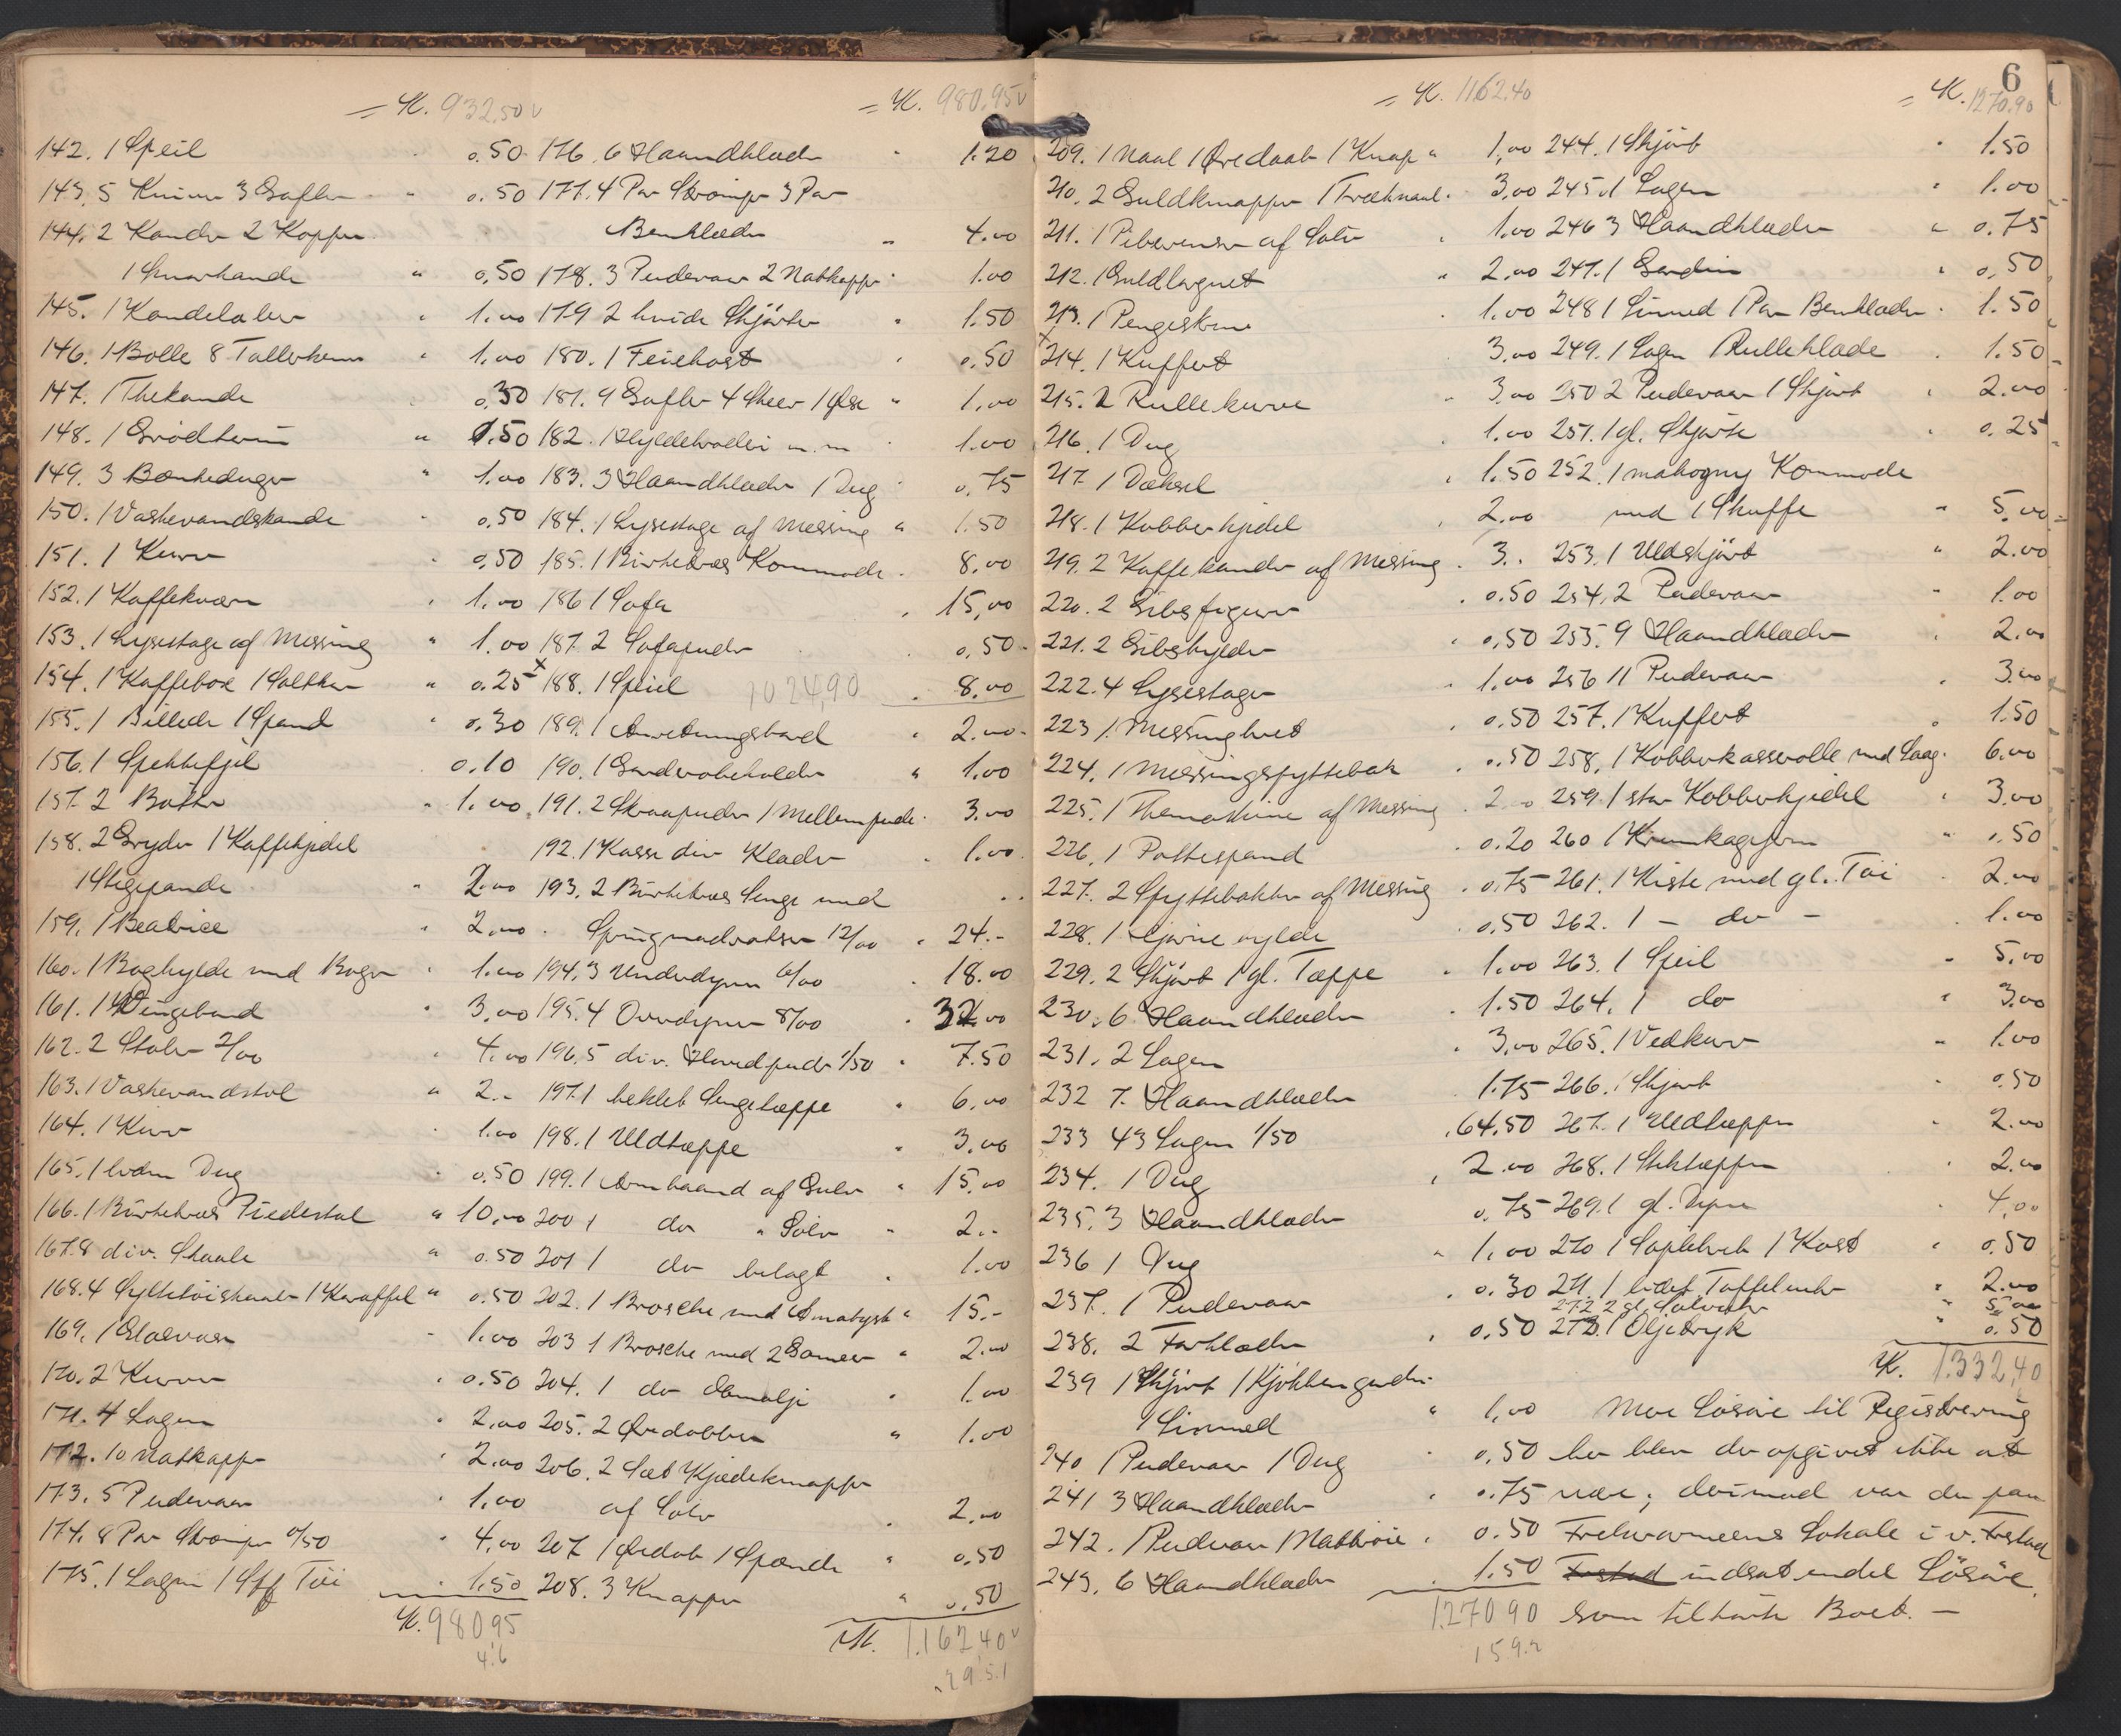 = K. 932.50
142. 1 Speil " 0.50
143. 5 Knive 3 Gafler " 0.50
144. 2 Kander 2 Kopper
1 " 0.50
145. 1 Kandelaber " 1.00
146. 1 Bolle 8 Tallerkener " 1.00
147. 1 Thekande 0.30
148. 1 " 0.50
149. 3 Bænkeduger " 1.00
150. 1 Vaskevandskande " 0.50
151. 1 Kurv " 0.50
152. 1 Kaffekværn " 1.00
153. 1 Lysestage af Messing " 1.00
154. 1 Kaffebox 1 " 0.25
155. 1 Billede 1 Spand " 0.30
156. 1 0.10
157. 2 Bøtter " 1.00
158. 2 Gryder 1 Kaffekjedel
1 Stegepande " 2.00
159. 1 Beatrice " 2.00
160. 1 Boghylde med Bøger " 1.00
161. 1 " 3.00
162. 2 Stoler 2/00 " 4.00
163. 1 Vaskevandstol " 2.-
164. 1 Kurv " 1.00
165. 1 Dug " 0.50
166. 1 Birketræs Piedestal " 10.00
167. 8 div. Skaale " 0.50
168. 4 Syltetöiskaale 1 Karaffel " 0.50
169. 1 Glasvase " 1.00
170. 2 Kurver " 0.50
171. 4 Lagen " 2.00
172. 10 Natkapper " 2.00
173. 5 Pudevaar " 1.00
174. 8 Par Strömper 0/50 " 4.00
175. 1 Lagen 1 Töi " 1.50
K. 980 95
4.6
= K. 980.95
176. 6 Haandklæder " 1.20
177. 4 Par Strömper 3 Par
Benklæder " 4.00
178. 3 Pudevaar 2 Natkapper " 1.00
179 2 hvide Skjörter " 1.50
180. 1 Feiekost " 0.50
181. 9 Gafler 4 Skeer 1 Öse " 1.00
182. 1 m. m. " 1.00
183. 3 Haandklæder 1 Dug " 0.75
184. 1 Lysestage af Messing " 1.50
185. 1 Birketræs Kommode " 8.00
186 1 Sofa " 15.00
187. 2 Sofapuder " 0.50
x 188. 1 Speil 1024,90 " 8.00
189. 1 Anretningsbord " 2.00
190. 1 Garderobeholder " 1.00
191. 2 Skraapuder 1 Mellempude " 3.00
192. 1 Kasse div Klæder " 1.00
193. 2 Birketræs Senge med
Springmadratser 12/00 " 24.-
194. 3 Underdyner 6/00 " 18.00
195. 4 Overdyner 8/00 " 32.00
196. 5 div. Hovedpuder 1/50 " 7.50
197. 1 heklet Sengetæppe " 6.00
198. 1 Uldtæppe " 3.00
199. 1 Armbaand af Gulv " 15.00
200 1 do " Sölv " 2.-
201 1 do belagt " 1.00
202. 1 Brosche med Ametyst " 15.-
203 1 Brosche med 2 " 2.00
204. 1 do Emalje " 1.00
205. 2 Öredobber " 1.00
206. 2 Sæt Kjædeknapper
af Sölv " 2.00
207. 1 Öredob 1 Spænde " 0.50
208. 3 Knapper " 0.50
K. 1.162,40
29.5.1
6
= K. 1162.40
209. 1 Naal 1 Öredaab 1 Knap " 1,00
210. 2 Guldknapper 1 " 3.00
211. 1 Piberenser af Sölv " 1.00
212. 1 Guldlorgnet " 2.00
213. 1 Pengeskrin " 1.00
x 214. 1 Kuffert 3.00
215. 2 Rullekurve " 3.00
216. 1 Dug " 1.00
217. 1 Dæksel " 1.50
218. 1 Kobberkjedel " 2.00
219. 2 Kaffekander af Messing " 3..
220. 2 Gibsfigurer " 0.50
221. 2 Gibshylder " 0,50
222. 4 Lysestager " 1.00
223 1. Messingbret " 0.50
224. 1 Messingspyttebak " 0.50
225. 1 Themaskine af Messing " 2.00
226. 1 Pottespand " 0.20
227. 2 Spyttebakker af Messing " 0.75
228. 1 Hjörne hylde " 0.50
229. 2 Skjört 1 gl. Tæppe " 1.00
230. 6 Haandklæder " 1.50
231. 2 Lagen " 3.00
232 7. Haandklæder 1.75
233 43 Lagen 1/50 " 64.50
234. 1 Dug " 2.00
235. 3 Haandklæder 0.75
236 1 Dug " 1.00
237. 1 Pudevaar " 0.30
238. 2 Forklæder " 0.50
239 1 Skjört 1
1 Linned " 1,00
240 1 Pudevaar 1 Dug " 0.50
241 3 Haandklæder " 0.75
242. 1 Pudevaar 1 Nattröie " 0.50
243. 6 Haandklæder " 1.50
1.270 90
159.2
= K. 1270.90
244. 1 Skjört " 1.50
245. 1 Lagen " 1.00
246 3 Haandklæder " 0.75
247. 1 Gardin " 0.50
248 1 Linned 1 Par Benklæder " 1.50
249. 1 Lagen 1 Rulleklæde " 1.50
250 2 Pudevaar 1 Skjört " 2.00
251. 1 gl. Skjörte " 0.25
252. 1 mahogny Kommode
med 1 Skuffe " 5.00
253. 1 Uldskjört " 2.00
254. 2 Pudevaar " 1.00
255. 9 Haandklæder " 2.00
256 11 Pudevaar " 3.00
257. 1 Kuffert " 1.50
258. 1 Kobberkasserolle med Laag " 6.00
259. 1 stor Kobberkjedel " 3.00
260 1 Krumkagejern " 0.50
261. 1 Kiste med gl. Töi " 2.00
262. 1 - do - " 1.00
263. 1 Speil " 5.00
264. 1 do " 3.00
265. 1 Vedkurv " 1.00
266. 1 Skjört " 0.50
267. 1 Uldtæppe " 2.00
268. 1 Stktæppe " 2.00
269. 1 gl. Dyne " 4,00
270 1 1 Kost " 0.50
271. 1 lidet Taffeluhr " 2.00
272 2 gl. Sölvuhr " 5.00
273. 1 Oljetryk " 0.50
K. 1.332,40
Mere Lösöre til Registrering
her blev der opgivet ikke at
være; derimod var der paa
Frelsarmeens Lokale i v. Frestad
Frestad indsat endel Lösöre,
som tilhörte Boet. -